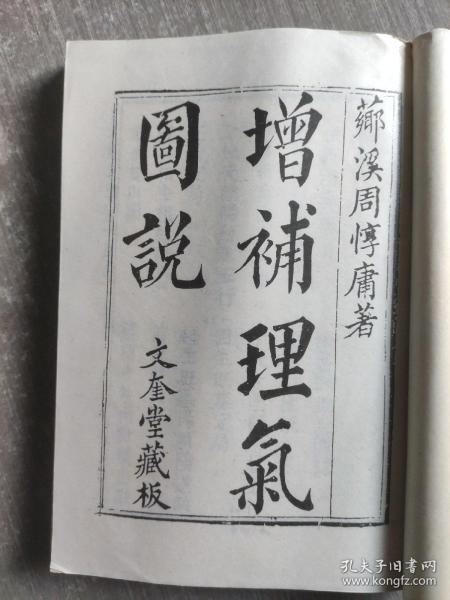 薌溪周惇庸著
增補理氣
圖説
文奎堂藏板
孔夫子旧书网
www.kongfz.com